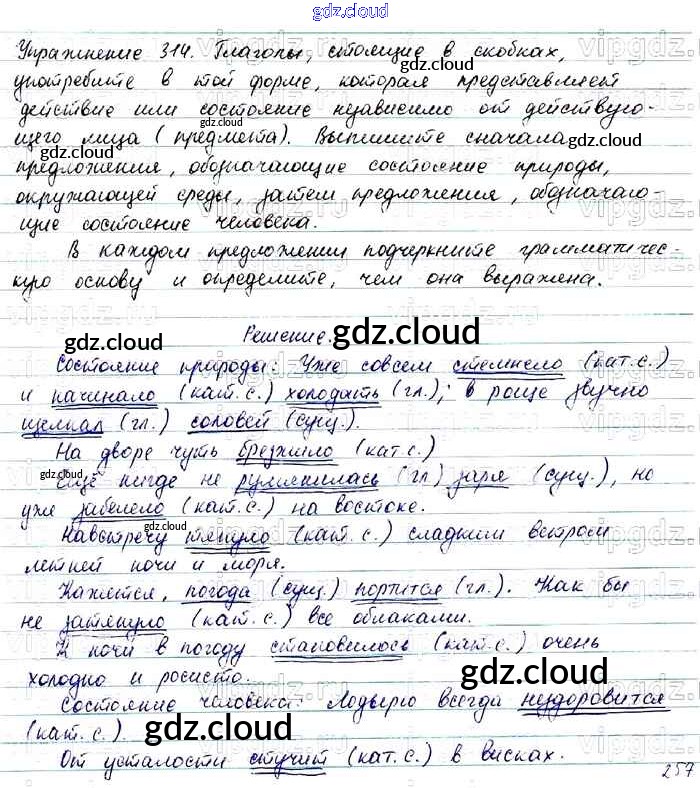 gdz.cloud
Упражнение 314. Глаголы, стоящие в скобках,
употребите в той форме, которая представляет
действие или состояние независимо от действую-
щего лица (предмета). Выпишите сначала
предложения, обозначающие состояние природы,
окружающей среды, затем предложения, обознача-
ющие состояние человека.
В каждом предложении подчеркните грамматичес-
кую основу и определите, чем она выражена.
Решение. gdz.cloud
Состояние природы: Уже совсем стемнело (кат.с.)
и начинало (кат.с.) холодать (гл.); в роще звучно
щелкал (гл.) соловей (сущ.).
На дворе чуть брезжило (кат.с.)
Ещё нигде не румянилась (гл.) заря (сущ.), но
уже забелело (кат.с.) на востоке.
Навстречу тянуло (кат.с.) сладким ветром
летней ночи и моря.
Кажется, погода (сущ.) портится (гл.). Как бы
не затянуло (кат.с.) все облаками.
К ночи в погоду становилось (кат.с.) очень
холодно и росисто.
gdz.cloud
Состояние человека: Лодырю всегда нездоровится
(кат.с.) gdz.cloud
От усталости стучит (кат.с.) в висках.
257